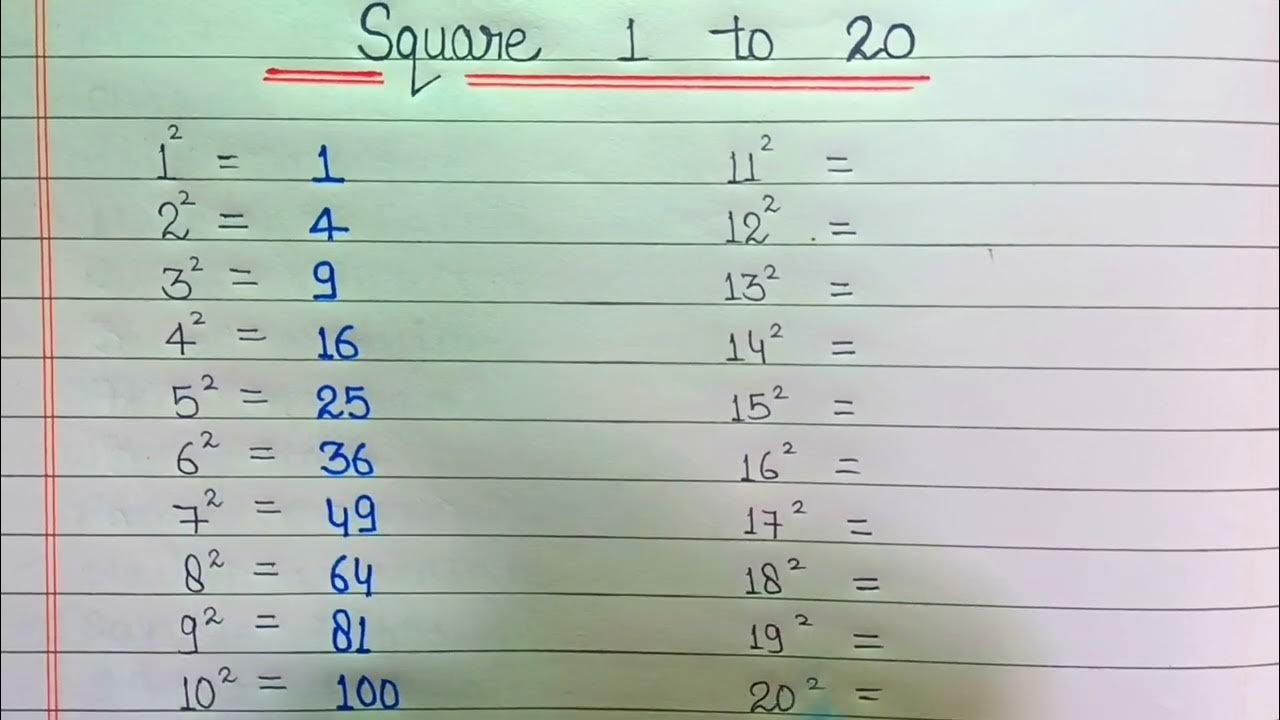 Square 1 to 20
1² = 1
2² = 4
3² = 9
4² = 16
5² = 25
6² = 36
7² = 49
8² = 64
9² = 81
10² = 100
11² =
12² =
13² =
14² =
15² =
16² =
17² =
18² =
19² =
20² =